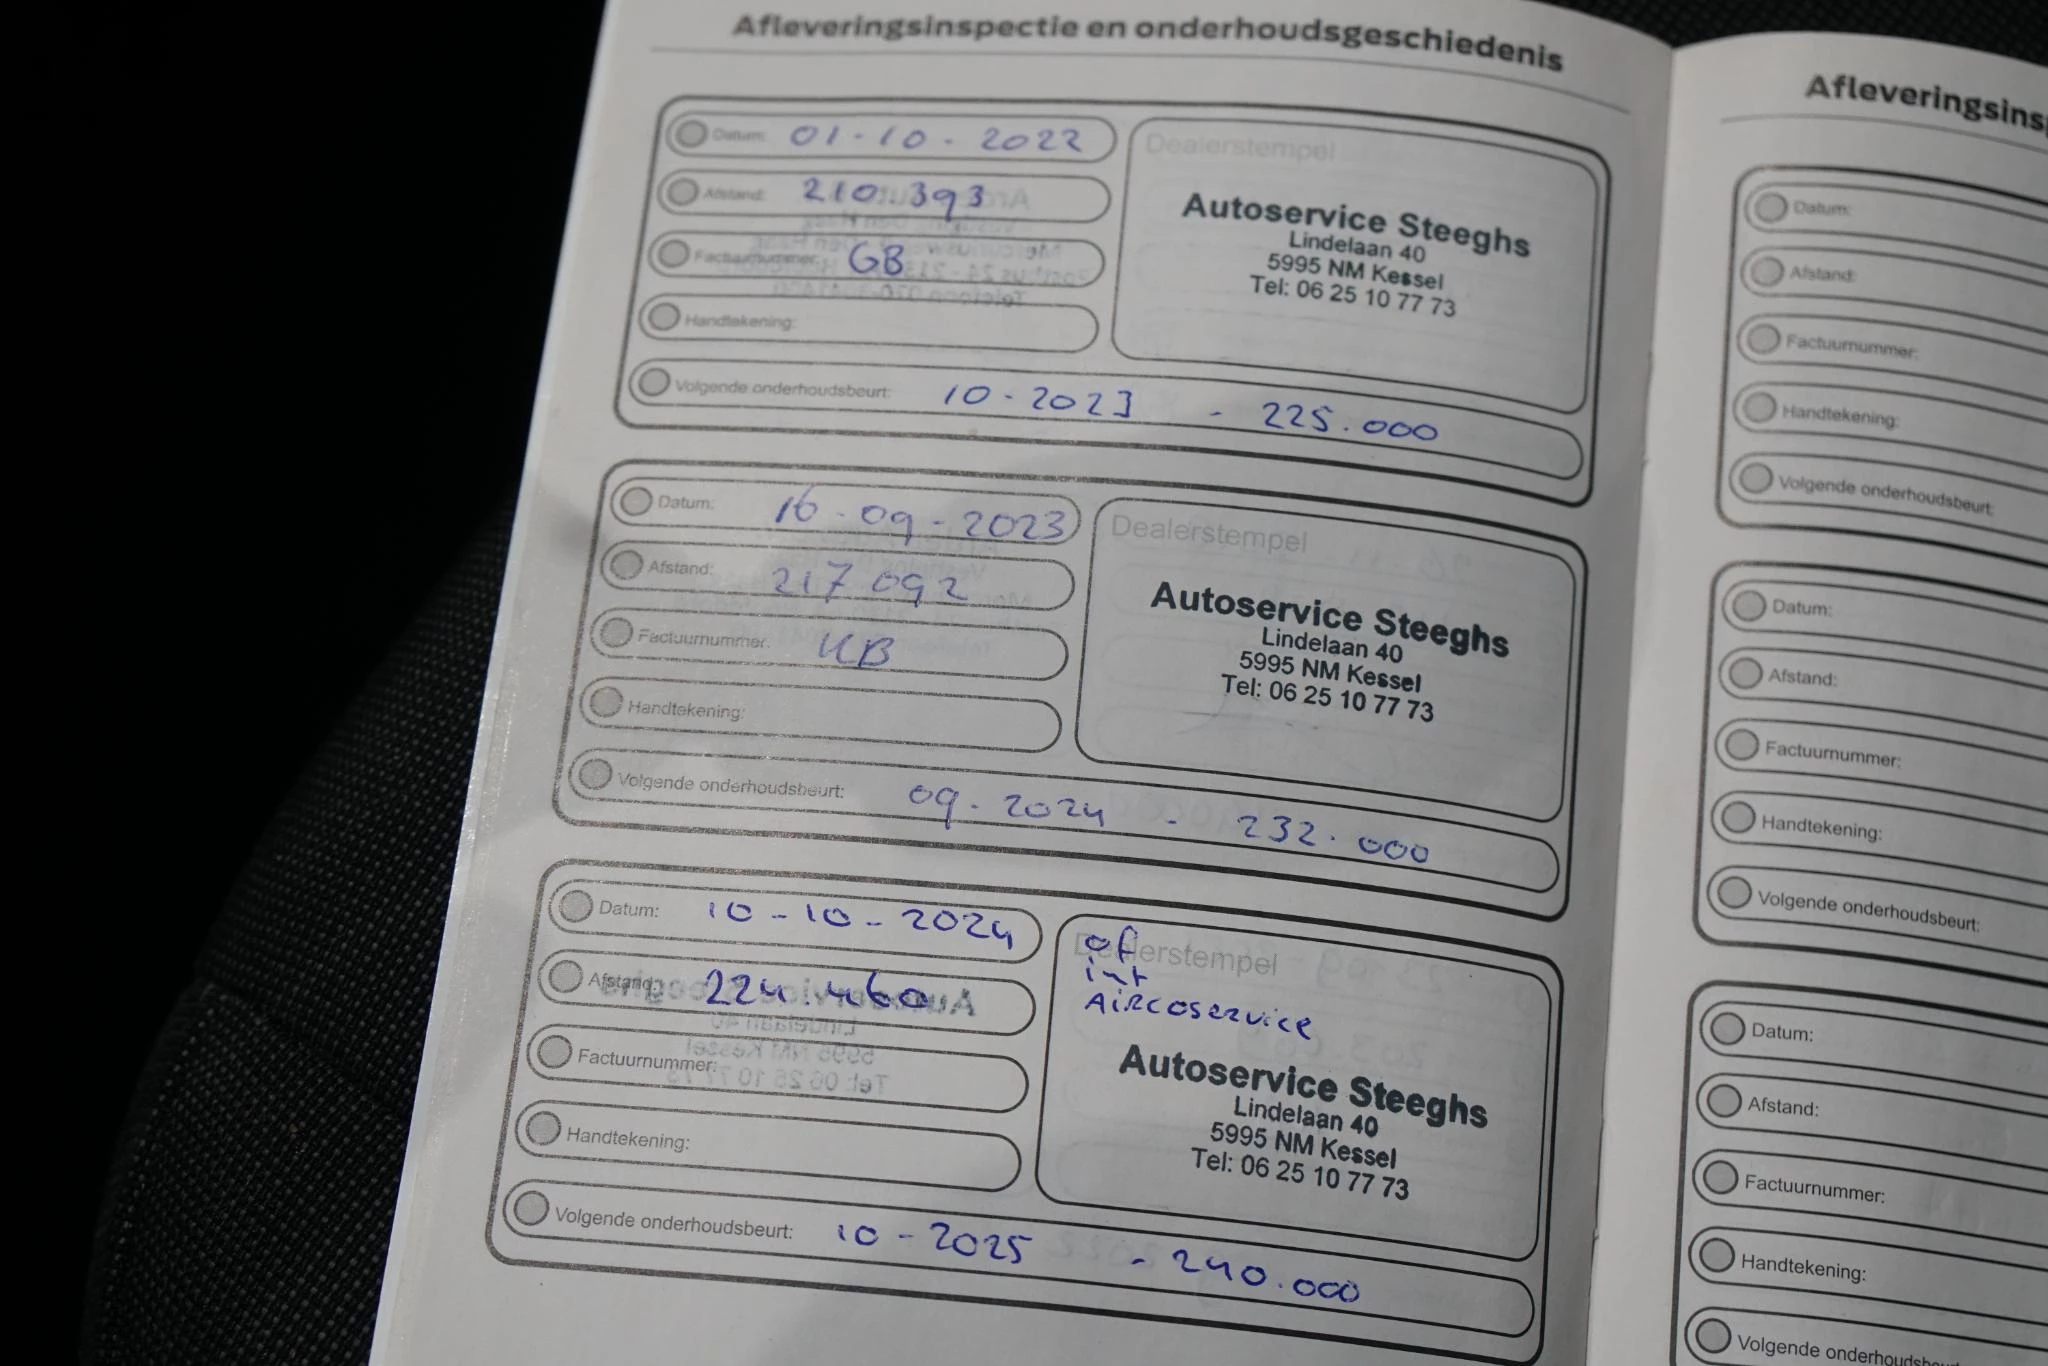 Afleveringsinspectie en onderhoudsgeschiedenis
Datum: 01-10-2022
Afstand: 210.393
Factuurnummer: GB
Handtekening:
Volgende onderhoudsbeurt: 10-2023 - 225.000
Dealerstempel
Autoservice Steeghs
Lindelaan 40
5995 NM Kessel
Tel: 06 25 10 77 73
Datum: 16-09-2023
Afstand: 217.092
Factuurnummer: KB
Handtekening:
Volgende onderhoudsbeurt: 09-2024 - 232.000
Dealerstempel
Autoservice Steeghs
Lindelaan 40
5995 NM Kessel
Tel: 06 25 10 77 73
Datum: 10-10-2024
Afstand: 224.460
Factuurnummer:
Handtekening:
Volgende onderhoudsbeurt: 10-2025 - 240.000
Dealerstempel
of
int
Aircoservice
Autoservice Steeghs
Lindelaan 40
5995 NM Kessel
Tel: 06 25 10 77 73
Datum:
Afstand:
Factuurnummer:
Handtekening:
Volgende onderhoudsbeurt:
Datum:
Afstand:
Factuurnummer:
Handtekening:
Volgende onderhoudsbeurt:
Datum:
Afstand:
Factuurnummer:
Handtekening:
Volgende